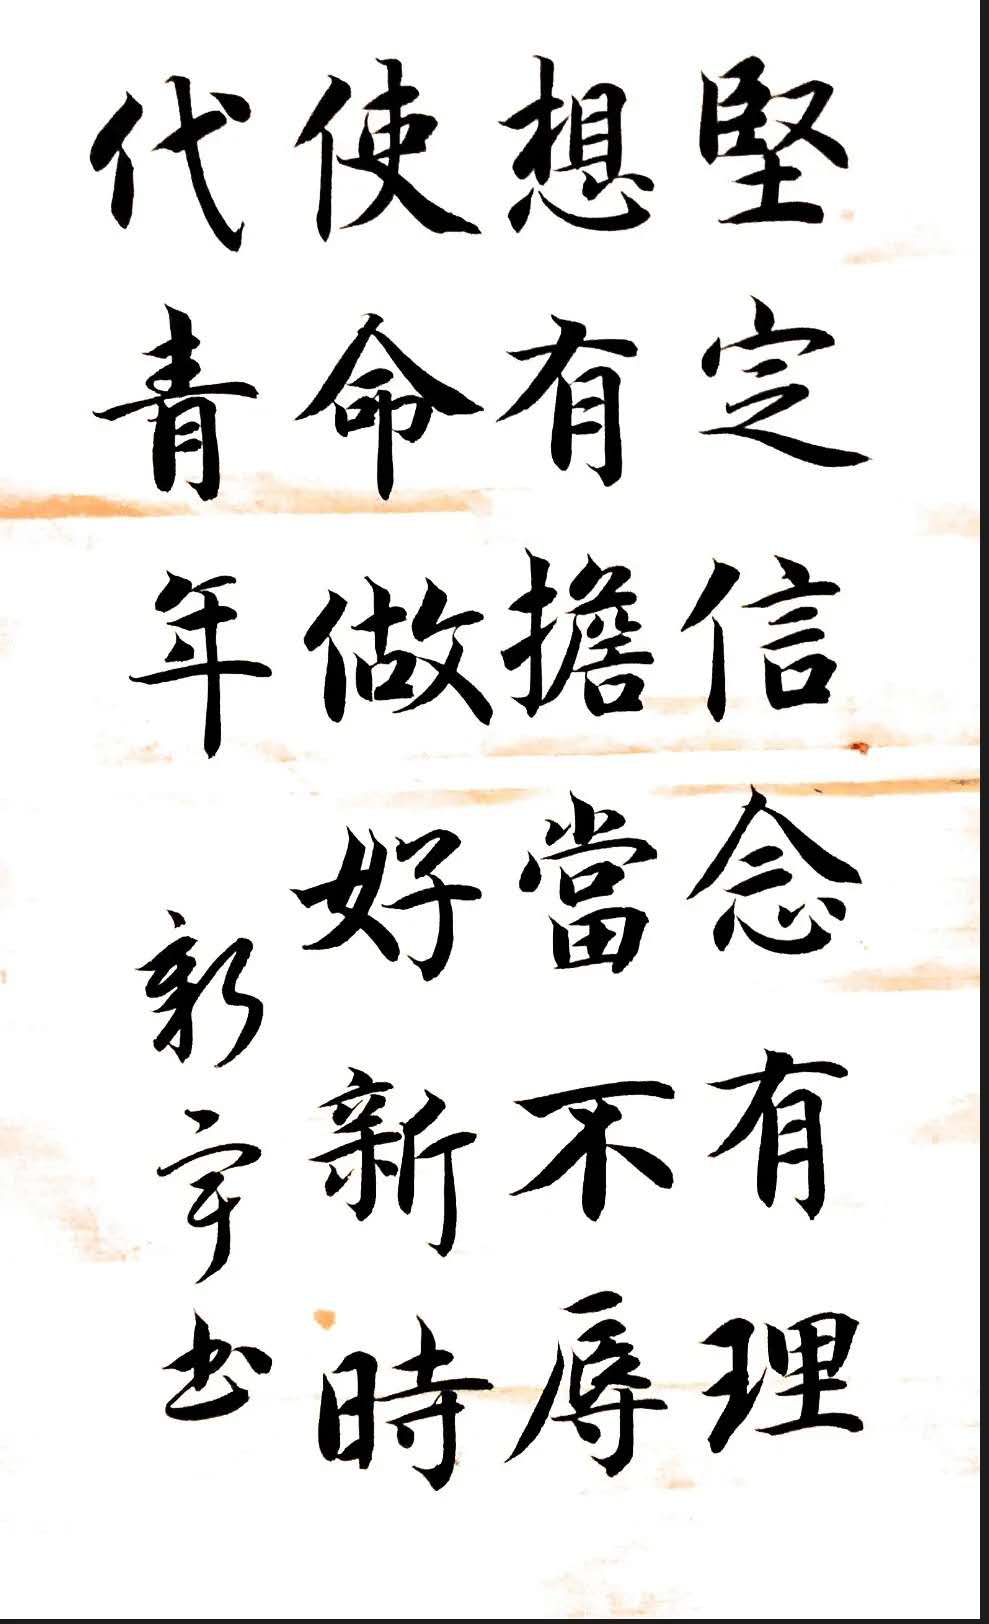 堅定信念有理
想有擔當不辱
使命做好新時
代青年
新宇书